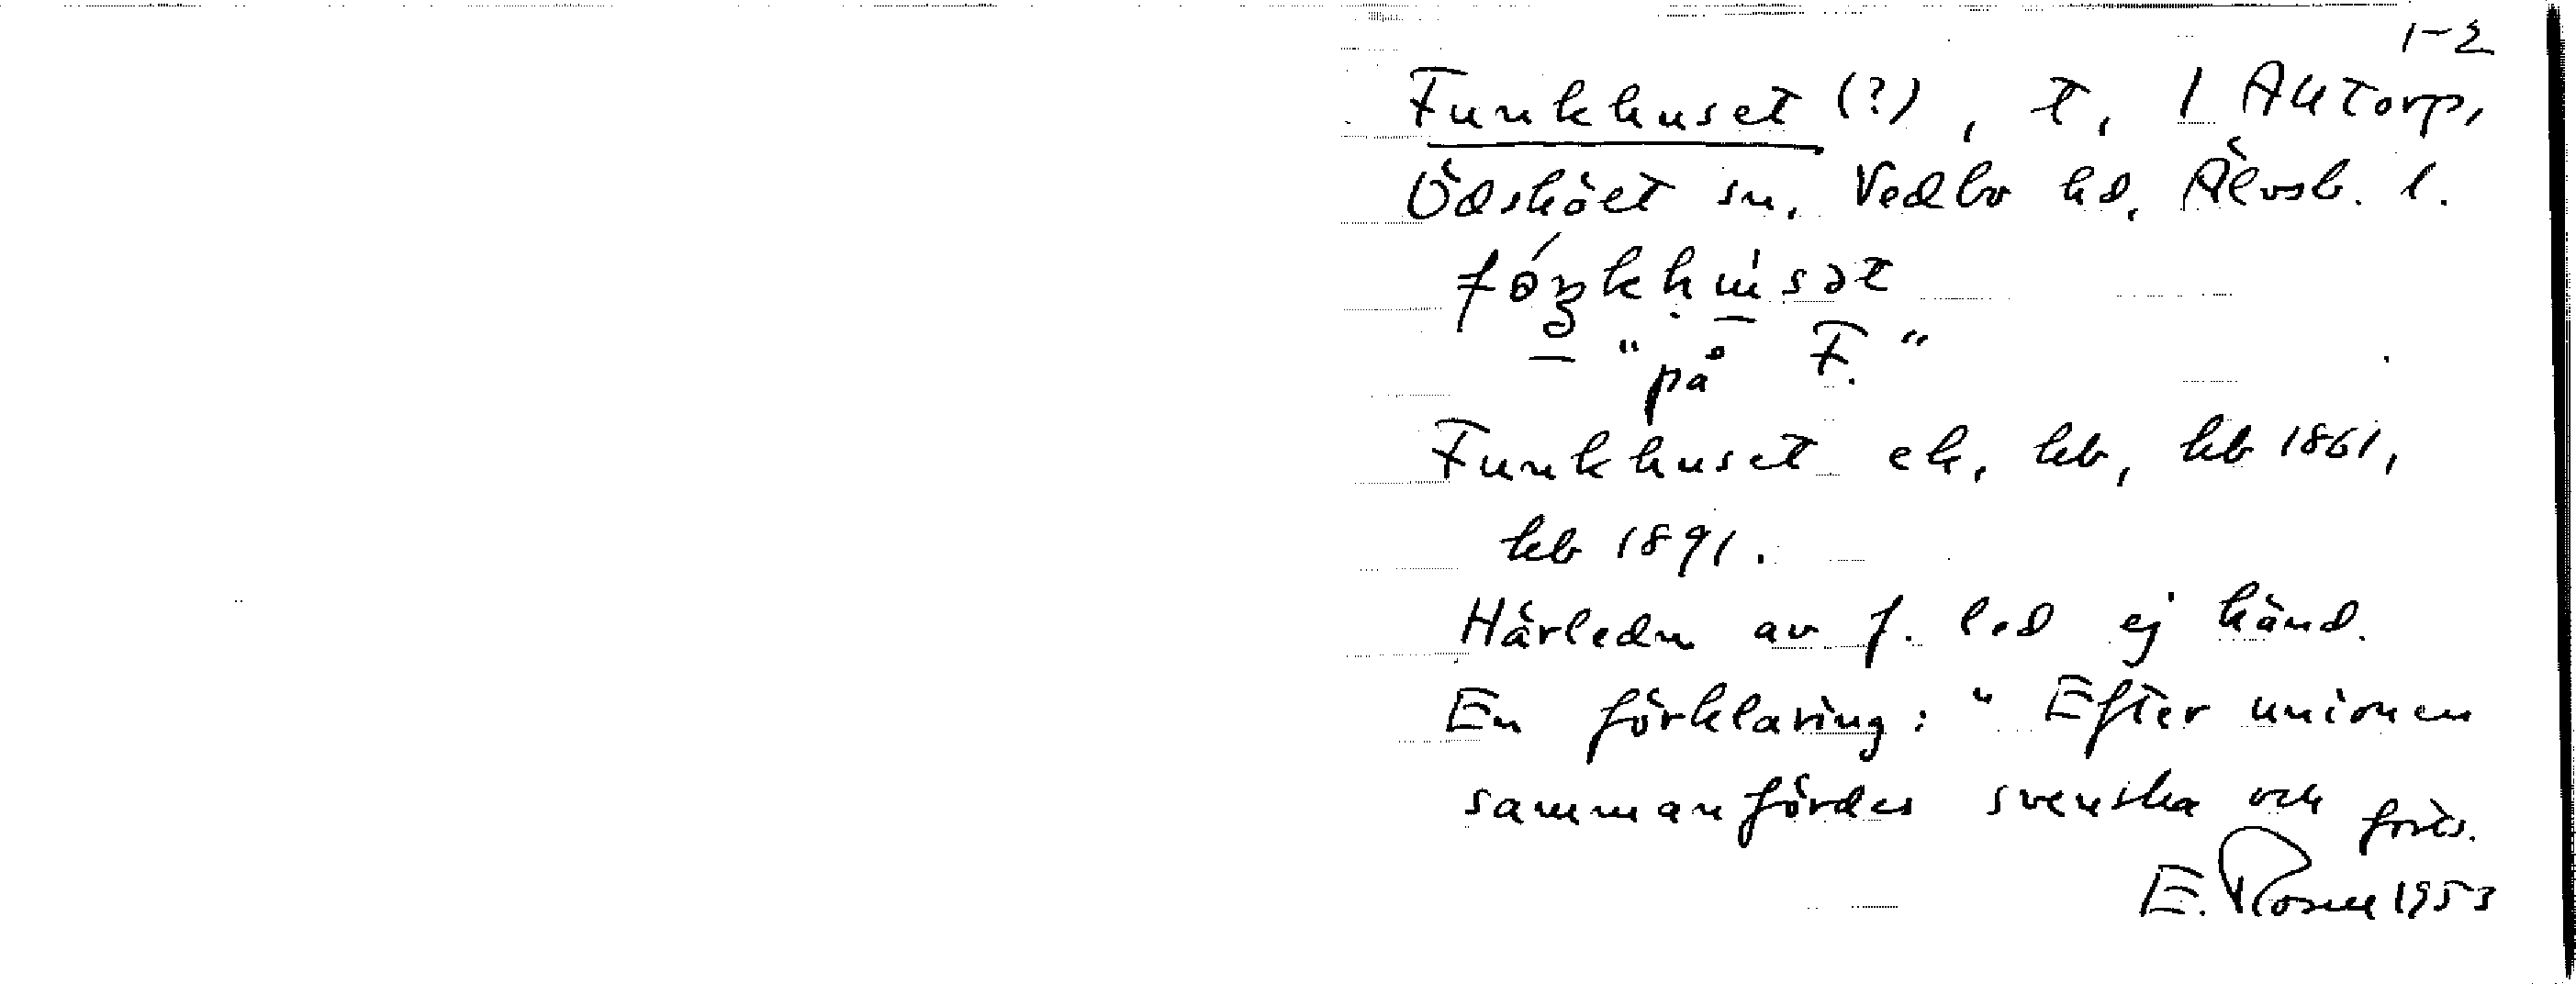 1-2
Funkhuset (?), t, 1 Alltorp,
Ödskölt sn, Vedbo hd, Älvsb. l.
"på F."
Funkhuset ek, kb, kb 1861,
kb 1891.
Härledn av f. led ej känd.
En förklaring: "Efter unionen
sammanfördes svenska och forts.
E. Rosell 1953